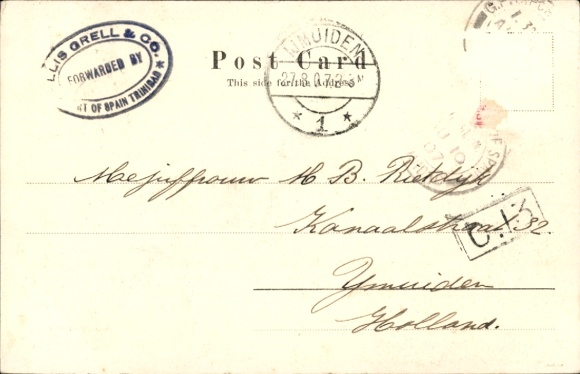 LLIS GRELL & CO.
FORWARDED BY
OF SPAIN TRINIDAD
Post Card
This side for the Address
IJMUIDEN
27.8.07.2-5N
1
Mejuffrouw M B. Rietdijk
Kanaalstraat 32.
Ymuiden
Holland.